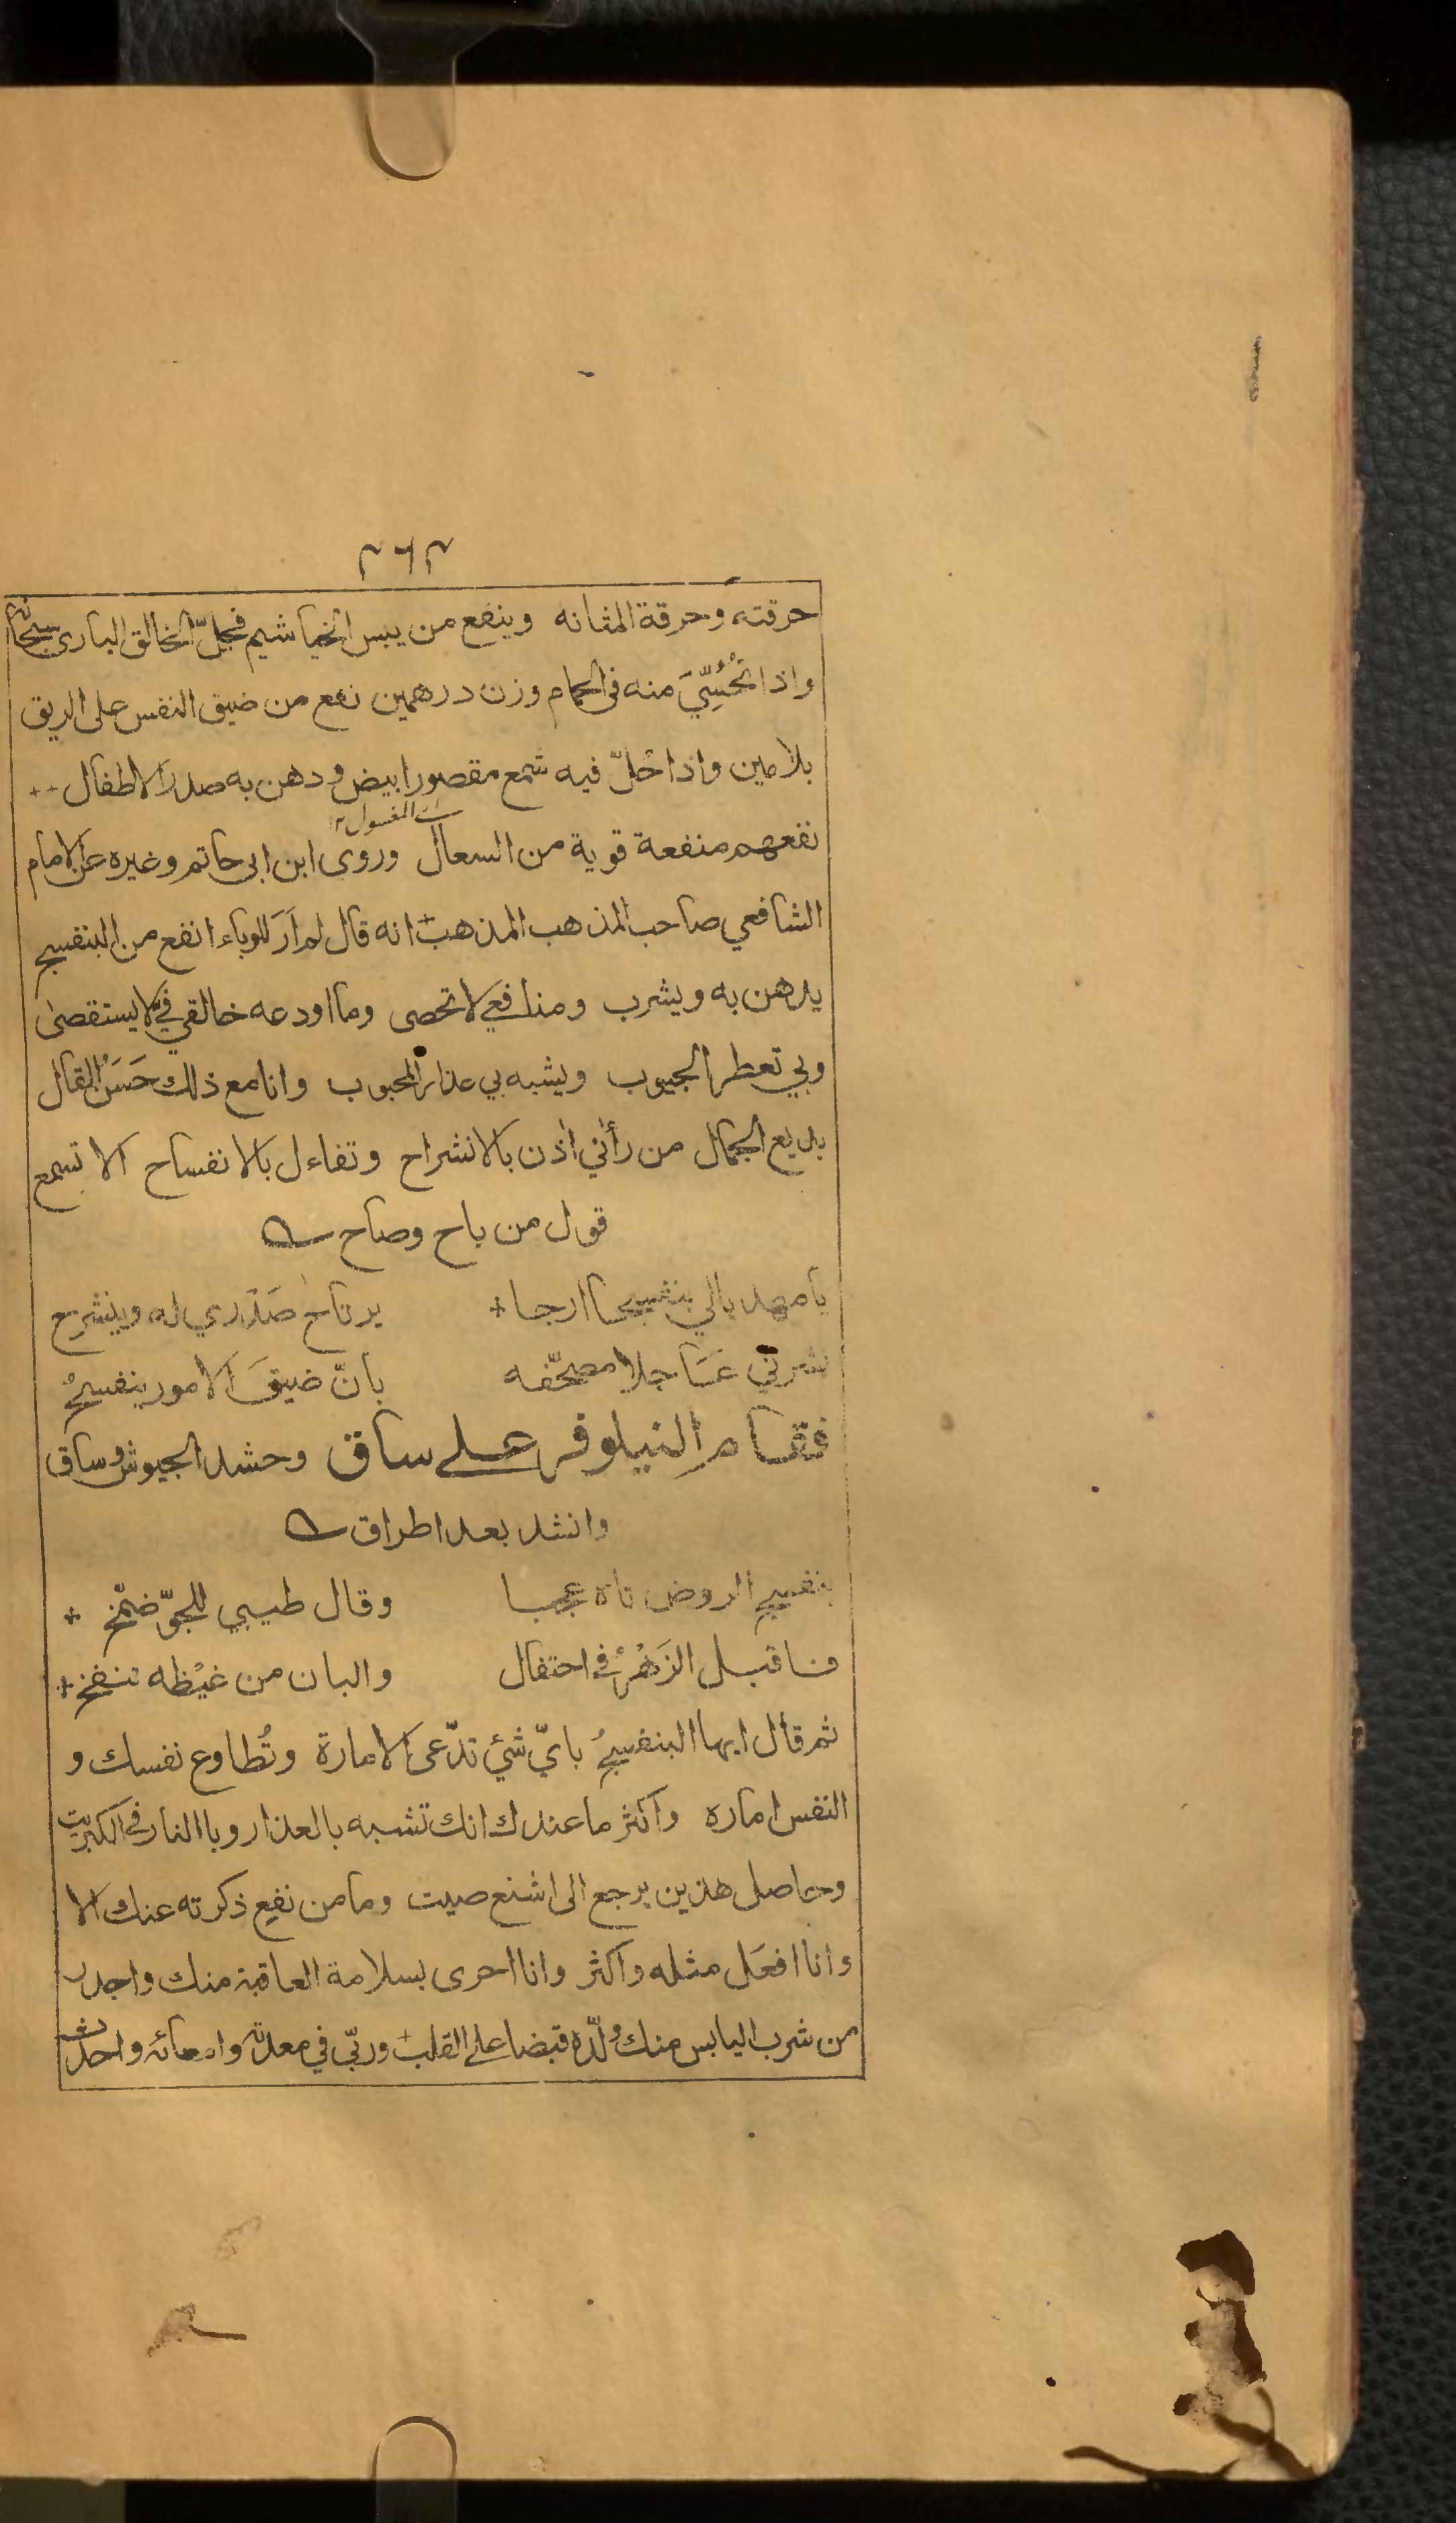 ٣٦٣
حرقته وحرقة المثانه وينفع من يبس الخياشيم فجلّ الخالق البارى سبحانه
واذا تُحُسِّيَ منه فى الحمام وزن درهمين نفع من ضيق النفس على الريق
بلامين واذا حُلّ فيه شمع مقصور ابيض ودهن به صدر الاطفال
اى المغسول ١٢
نفعهم منفعة قوية من السعال وروى ابن ابى حاتم وغيره عن الامام
الشافعي صاحب المذهب المذهب انه قال لم اَرَ للوباء انفع من البنفسج
يدهن به ويشرب ومنافعي لا تحصى وما اودعه خالقي فيّ لا يستقصىٰ
وبي تعطر الجيوب ويشبه بي عذار المحبوب وانا مع ذلك حَسَنُ القال
بديع الجمال من رأني اذن بالانشراح وتفاءل بالانفساح الا تسمع
قول من باح وصاح
يا مهديا لي بنفسجا ارجا يرتاح صَدْري له وينشرح
بشرني عَاجلا مصحّفه بانّ ضيقَ الامور ينفسحُ
فقام النيلوفر على ساق وحشد الجيوش وساق
وانشد بعد اطراق
بنفسج الروض تاه عجبا وقال طيبي للجوّ ضمّخ
فاقبل الزَهْرُ فى احتفال والبان من غيْظه تنفخ
ثم قال ايها البنفسجُ باىّ شئ تدّعى الامارة وتُطاوع نفسك و
النفس امارة واكثر ما عندك انك تشبه بالعذار وبا النار فى الكبريت
وحاصل هذين يرجع الى اشنع صيت وما من نفع ذكرته عنك الا
وانا افعَل مثله واكثر وانا احرى بسلامة العاقبة منك واجدر
من شرب اليابس منك ولّده قبضا على القلب وربّي في معدته وامعائه واحدث